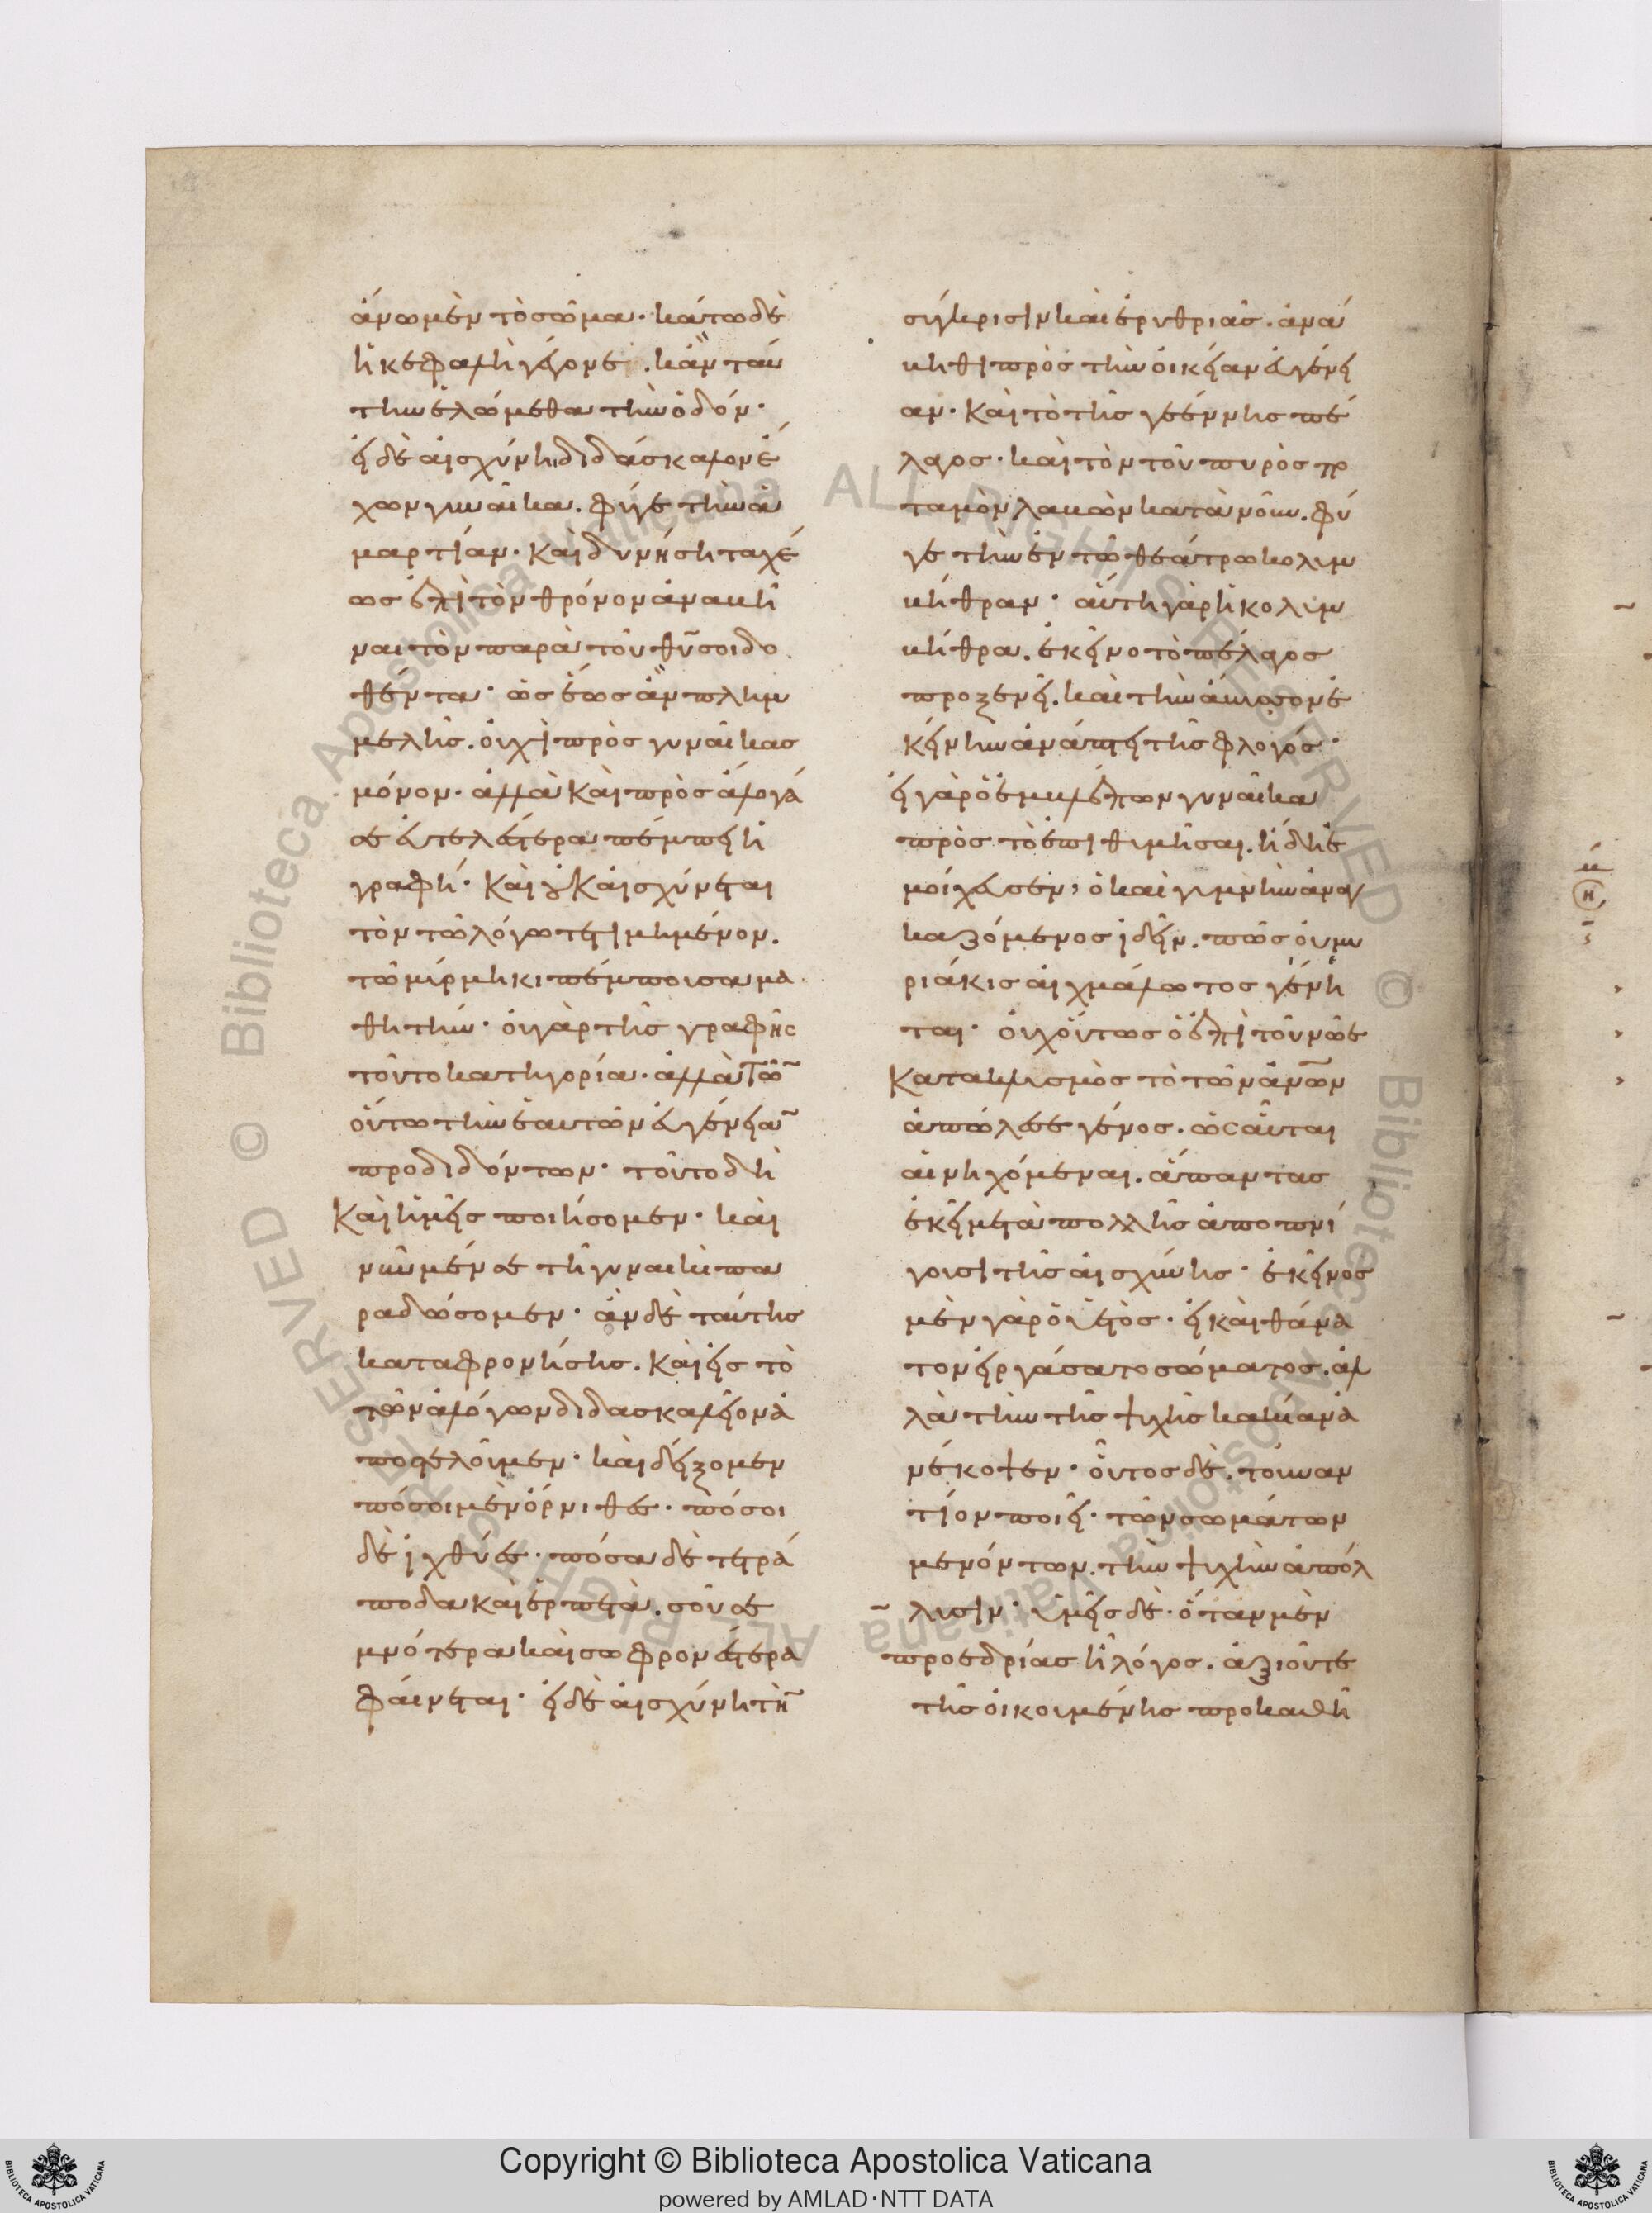 ἄνω μὲν τὸ σῶμα· κάτω δὲ
ἡ κεφαλὴ γέγονε. κἂν ταύ
την ἑλώμεθα τὴν ὁδόν·
εἰ δὲ αἰσχύνῃ διδάσκαλον ἔ
χων γυναῖκα. φύγε τὴν ἁ
μαρτίαν· καὶ δυνήσῃ ταχέ
ως ἐπὶ τὸν θρόνον ἀναβῆ
ναι τὸν παρὰ τοῦ θυ σοι δο
θέντα· ὡς ἕως ἂν πλημ
μελῇς. οὐχὶ πρὸς γυναῖκας
μόνον· ἀλλὰ καὶ πρὸς ἄλογά
σε εὐτελέστερα πέμπει ἡ
γραφή· καὶ οὐκ αἰσχύνεται
τὸν τῷ λόγω τετιμημένον.
τῶ μύρμηκι πέμπουσα μα
θητήν· οὐ γὰρ τῆς γραφῆς
τοῦτο κατηγορία· ἀλλὰ τῶν
οὕτω τὴν ἑαυτῶν εὐγένειαν
προδιδόντων· τοῦτο δὴ
καὶ ἡμεῖς ποιήσομεν· καὶ
νῦν μέν σε τῇ γυναικὶ πα
ραδώσομεν· ἂν δὲ ταύτης
καταφρονήσῃς. καὶ εἰς τὸ
τῶν ἀλόγων διδασκαλεῖον ἀ
ποστελοῦμεν· καὶ δείξομεν
πόσοι μὲν ὄρνιθες· πόσοι
δὲ ἰχθύες· πόσα δὲ τετρά
ποδα καὶ ἑρπετὰ. σοῦ σε
μνότερα καὶ σωφρονέστερα
φαίνεται· εἰ δὲ αἰσχύνῃ τὴν
σύγκρισιν καὶ ἐρυθριᾶς. ἀνά
βηθι πρὸς τὴν οἰκείαν εὐγένει
αν· καὶ τὸ τῆς γεέννης πέ
λαγος· καὶ τὸν τοῦ πυρὸς πο
ταμὸν λαβὼν κατὰ νοῦν. φύ
γε τὴν ἐν τῶ θεάτρω κολυμ
βήθραν· αὕτη γὰρ ἡ κολυμ
βήθρα. ἐκεῖνο τὸ πέλαγος
προξενεῖ. καὶ τὴν ἄβυσσον ἐ
κείνην ἀνάπτει τῆς φλογός·
εἰ γὰρ ὁ ἐμβλέπων γυναῖκα
πρὸς τὸ ἐπιθυμῆσαι. ἤδη ἐ
μοίχευσεν, ὁ καὶ γυμνὴν ἀναγ
καζόμενος ἰδεῖν. πῶς οὐ μυ
ριάκις αἰχμάλωτος γένη
ται· οὐχ οὕτως ὁ ἐπὶ τοῦ νῶε
κατακλυσμὸς τὸ τῶν ἀνων
ἀπώλεσε γένος. ὡς αὗται
αἱ νηχόμεναι. ἅπαντας
ἐκεῖ μετὰ πολλῆς ἀποπνί
γουσι τῆς αἰσχύνης· ἐκεῖνος
μὲν γὰρ ὁ ὑετὸς· εἰ καὶ θάνα
τον εἰργάσατο σώματος. ἀλ
λὰ τὴν τῆς ψυχῆς κακίαν ἀ
νέκοψεν· οὗτος δὲ. τοὐναν
τίον ποιεῖ· τῶν σωμάτων
μενόντων. τὴν ψυχὴν ἀπόλ
λυσιν· ὑμεῖς δὲ· ὅταν μὲν
προεδρίας ᾖ λόγος. ἀξιοῦτε
τῆς οἰκουμένης προκαθῆ
Copyright © Biblioteca Apostolica Vaticana
powered by AMLAD·NTT DATA